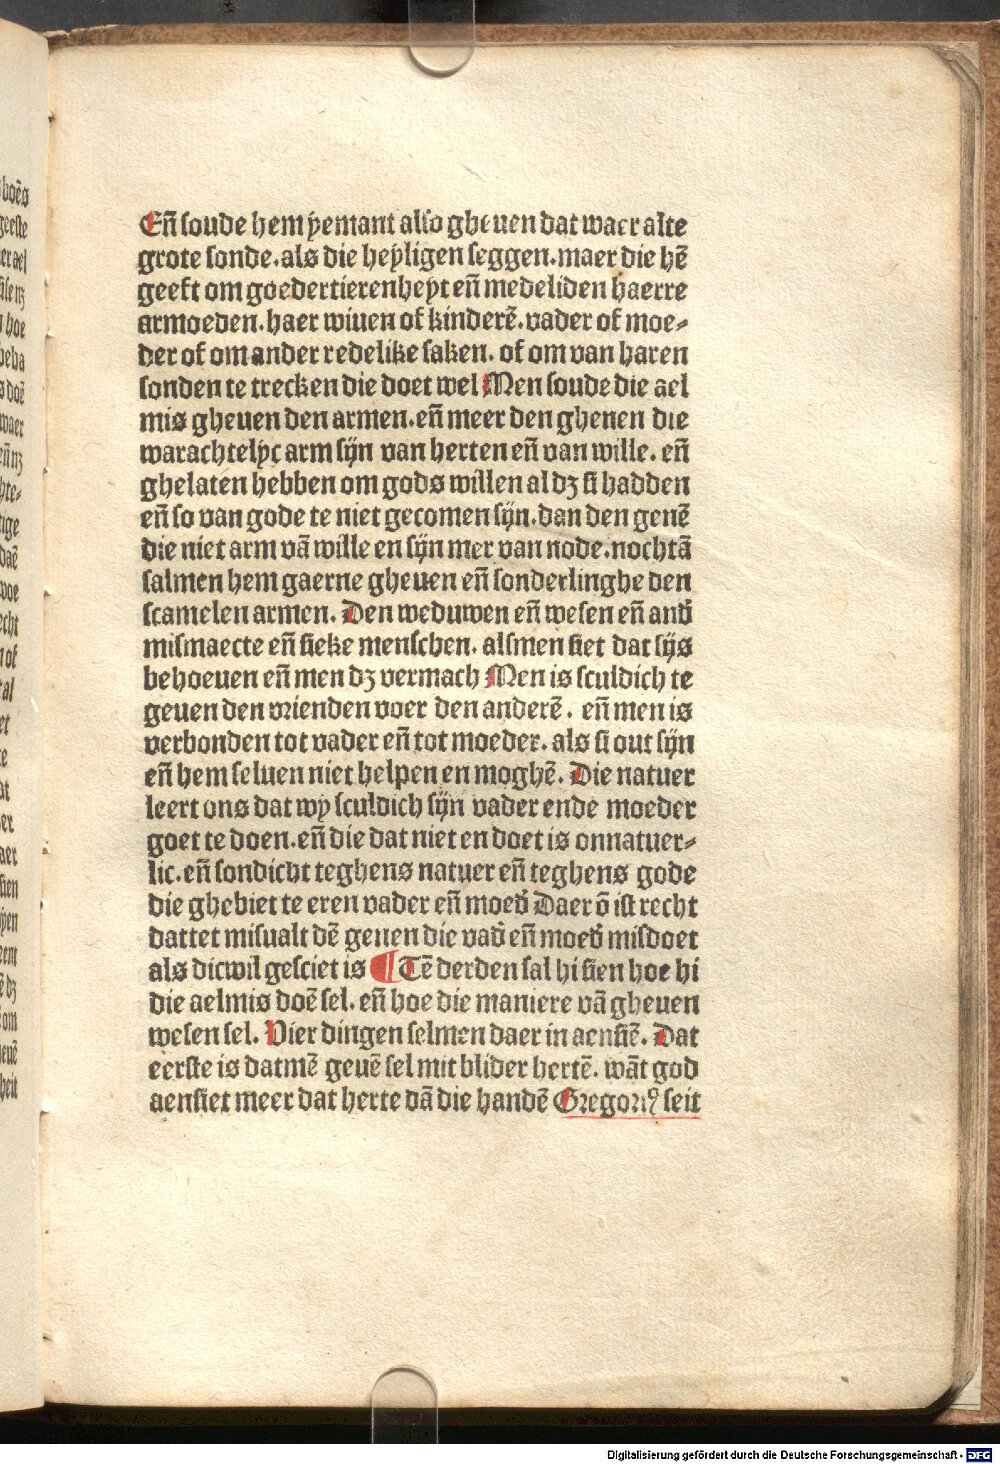 Eñ soude hem yemant also gheuen dat waer alte
grote sonde. als die heyligen seggen. maer die hē
geeft om goedertierenheyt eñ medeliden haerre
armoeden. haer wiuen of kinderē. vader of moe⸗
der of om ander redelike saken. of om van haren
sonden te trecken die doet wel Men soude die ael
mis gheuen den armen. eñ meer den ghenen die
warachtelyc arm sijn van herten eñ van wille. eñ
ghelaten hebben om gods willen al dꝫ si hadden
eñ so van gode te niet gecomen sijn. dan den genē
die niet arm vā wille en sijn mer van node. nochtā
salmen hem gaerne gheuen eñ sonderlinghe den
scamelen armen. Den weduwen eñ wesen eñ and̄
mismaecte eñ sieke menschen. alsmen siet dat sijs
behoeuen eñ men dꝫ vermach Men is sculdich te
geuen den vrienden voer den anderē. eñ men is
verbonden tot vader eñ tot moeder. als si out sijn
eñ hem seluen niet helpen en moghē. Die natuer
leert ons dat wy sculdich sijn vader ende moeder
goet te doen. eñ die dat niet en doet is onnatuer⸗
lic. eñ sondicht teghens natuer eñ teghens gode
die ghebiet te eren vader eñ moed̄ Daer ō ist recht
dattet misualt dē geuen die vad̄ eñ moed̄ misdoet
als dicwil gesciet is ¶ Tē derden sal hi sien hoe hi
die aelmis doē sel. eñ hoe die maniere vā gheuen
wesen sel. Vier dingen selmen daer in aensiē. Dat
eerste is datmē geuē sel mit blider hertē. wāt god
aensiet meer dat herte dā die handē Gregoriꝰ seit
Digitalisierung gefördert durch die Deutsche Forschungsgemeinschaft - DFG